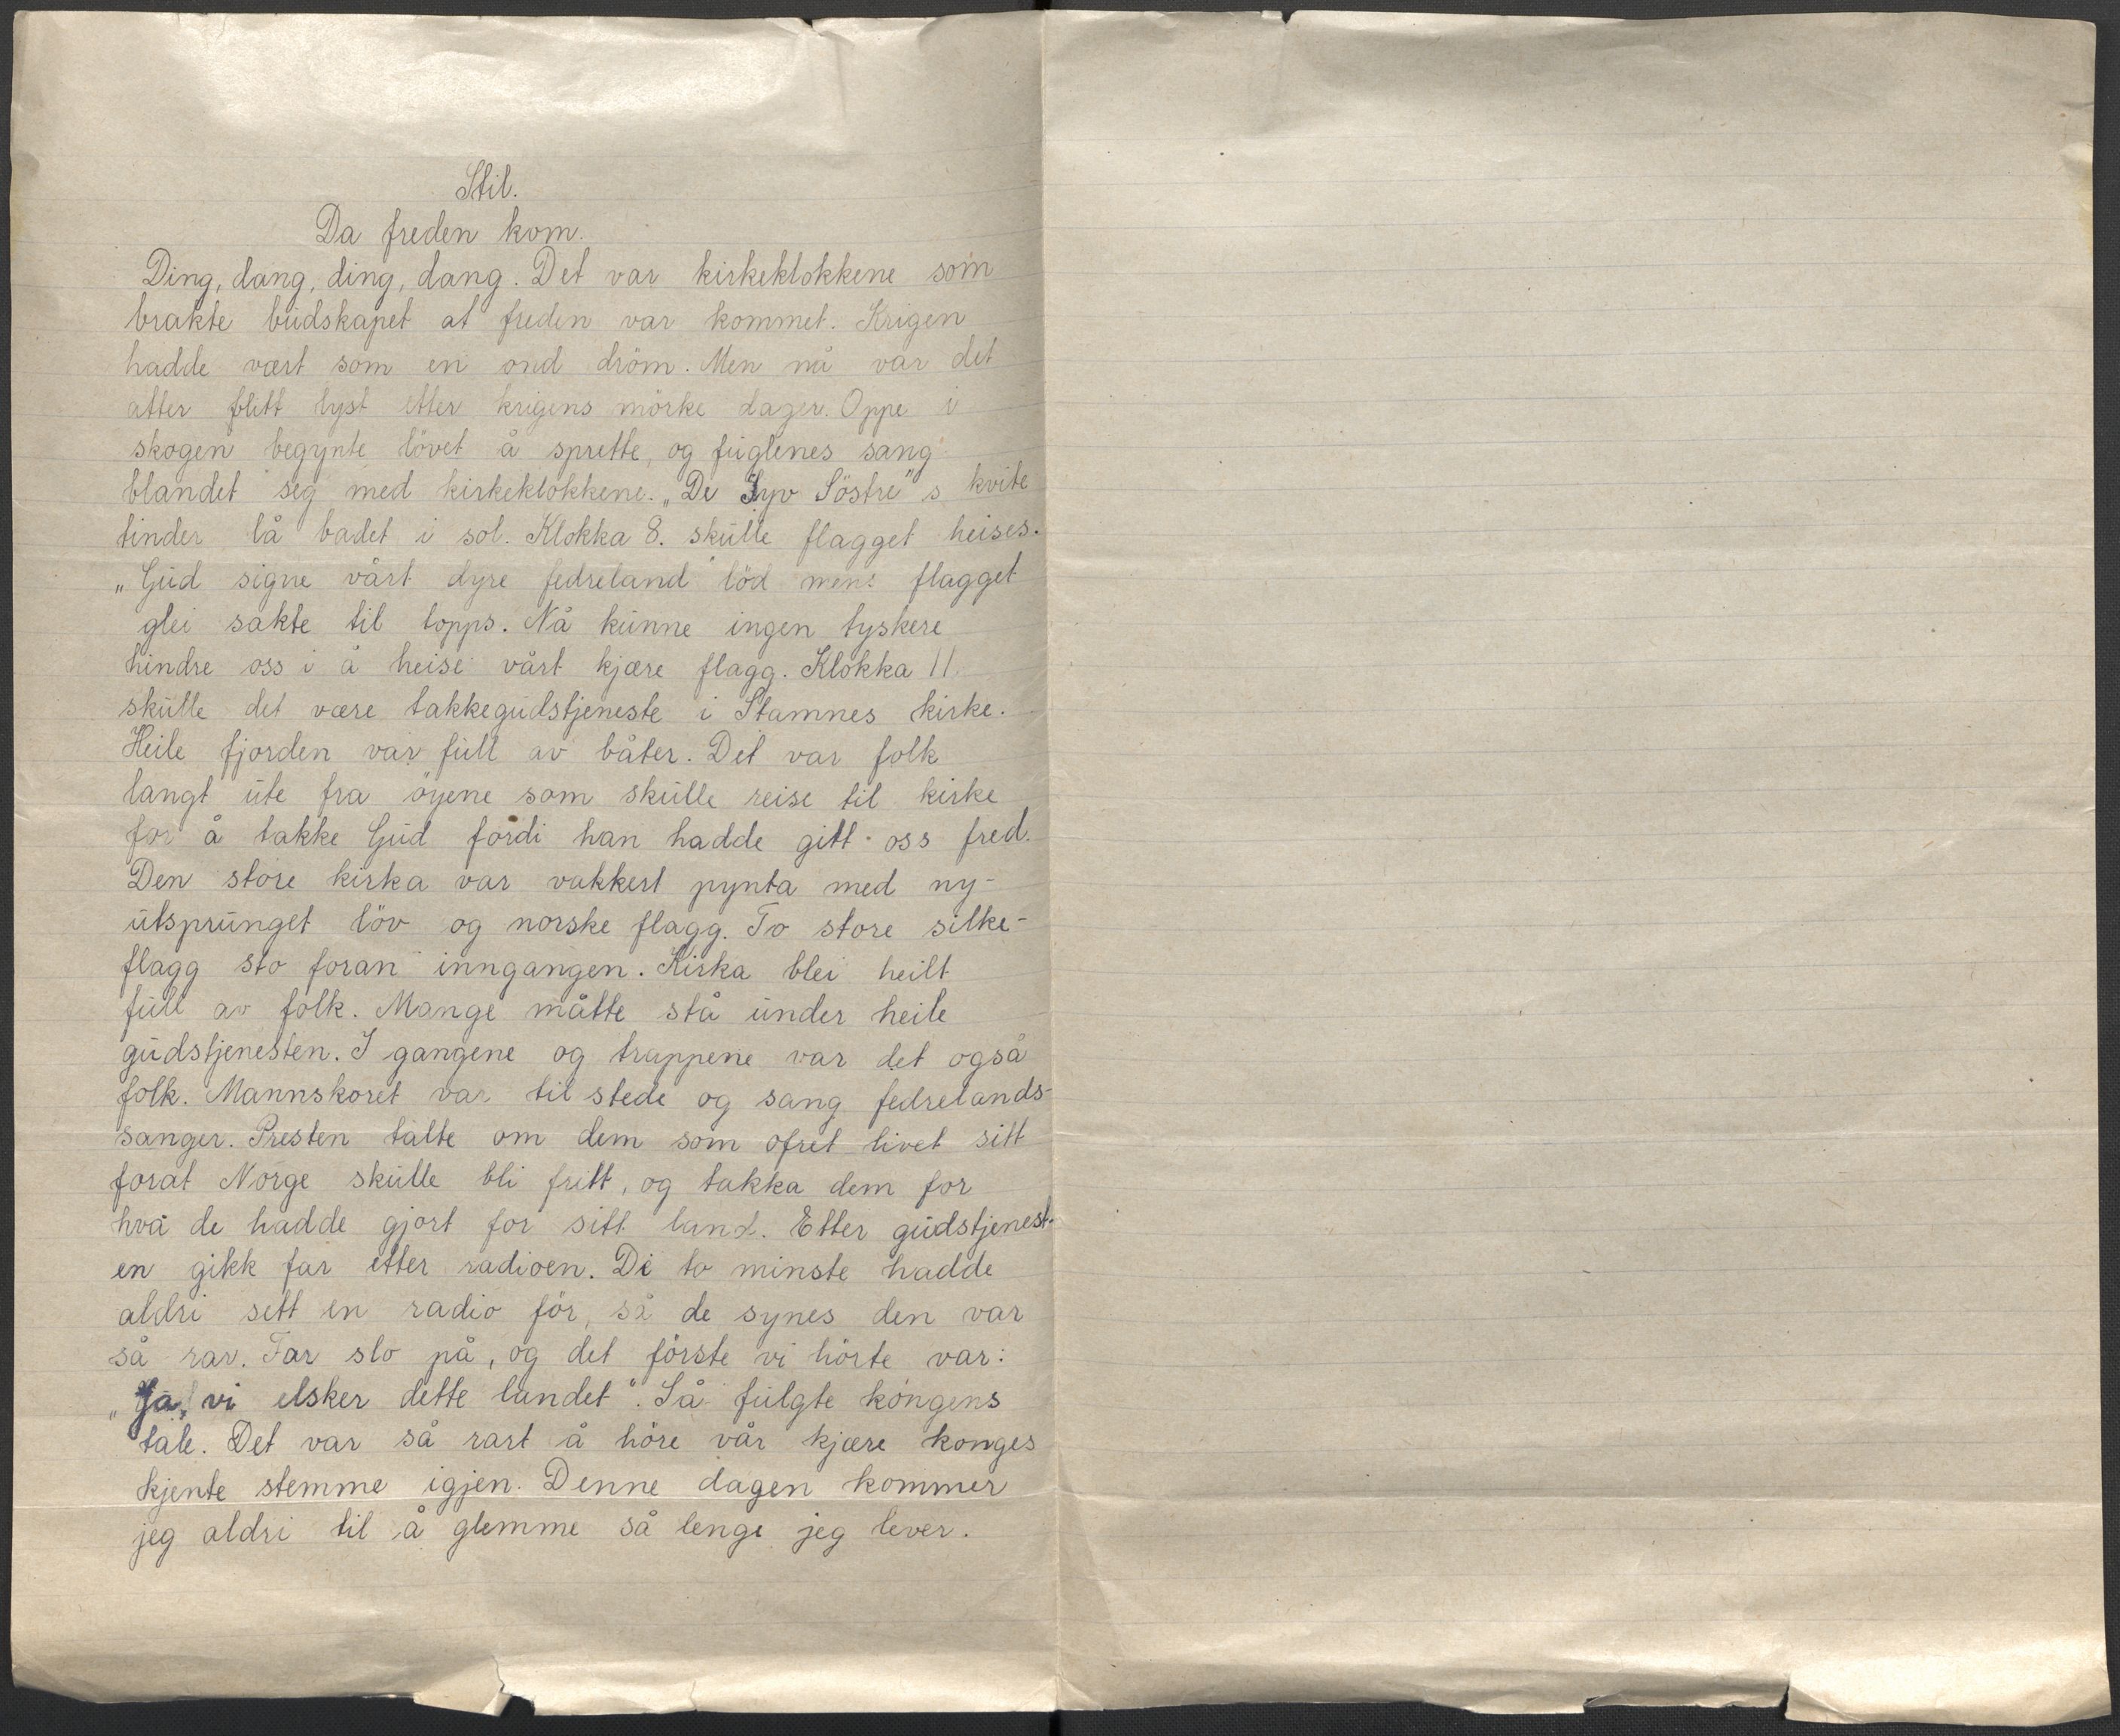 Stil.
Da freden kom.
Ding, dang, ding, dang. Det var kirkeklokkene som
brakte budskapet at freden var kommet. Krigen
hadde vært som en ond dröm. Men nå var det
atter blitt lyst etter krigens mörke dager. Oppe i
skogen begynte lövet å sprette, og fuglenes sang
blandet seg med kirkeklokkene. „De Syv Söstre"s kvite
tinder lå badet i sol. Klokka 8. skulle flagget heises.
„Gud signe vårt dyre fedreland" löd mens flagget
glei sakte til topps. Nå kunne ingen tyskere
hindre oss i å heise vårt kjære flagg. Klokka 11.
skulle det være takkegudstjeneste i Stamnes kirke.
Heile fjorden var full av båter. Det var folk
langt ute fra öyene som skulle reise til kirke
for å takke Gud fordi han hadde gitt oss fred.
Den store kirka var vakkert pynta med ny-
utsprunget löv og norske flagg. To store silke-
flagg sto foran inngangen. Kirka blei heilt
full av folk. Mange måtte stå under heile
gudstjenesten. I gangene og trappene var det også
folk. Mannskoret var til stede og sang fedrelands-
sanger. Presten talte om dem som ofret livet sitt
forat Norge skulle bli fritt, og takka dem for
hva de hadde gjort for sitt land. Etter gudstjenest-
en gikk far etter radioen. De to minste hadde
aldri sett en radio för, så de synes den var
så rar. Far slo på, og det förste vi hörte var:
„Ja, vi elsker dette landet". Så fulgte kongens
tale. Det var så rart å höre vår kjære konges
kjente stemme igjen. Denne dagen kommer
jeg aldri til å glemme så lenge jeg lever.